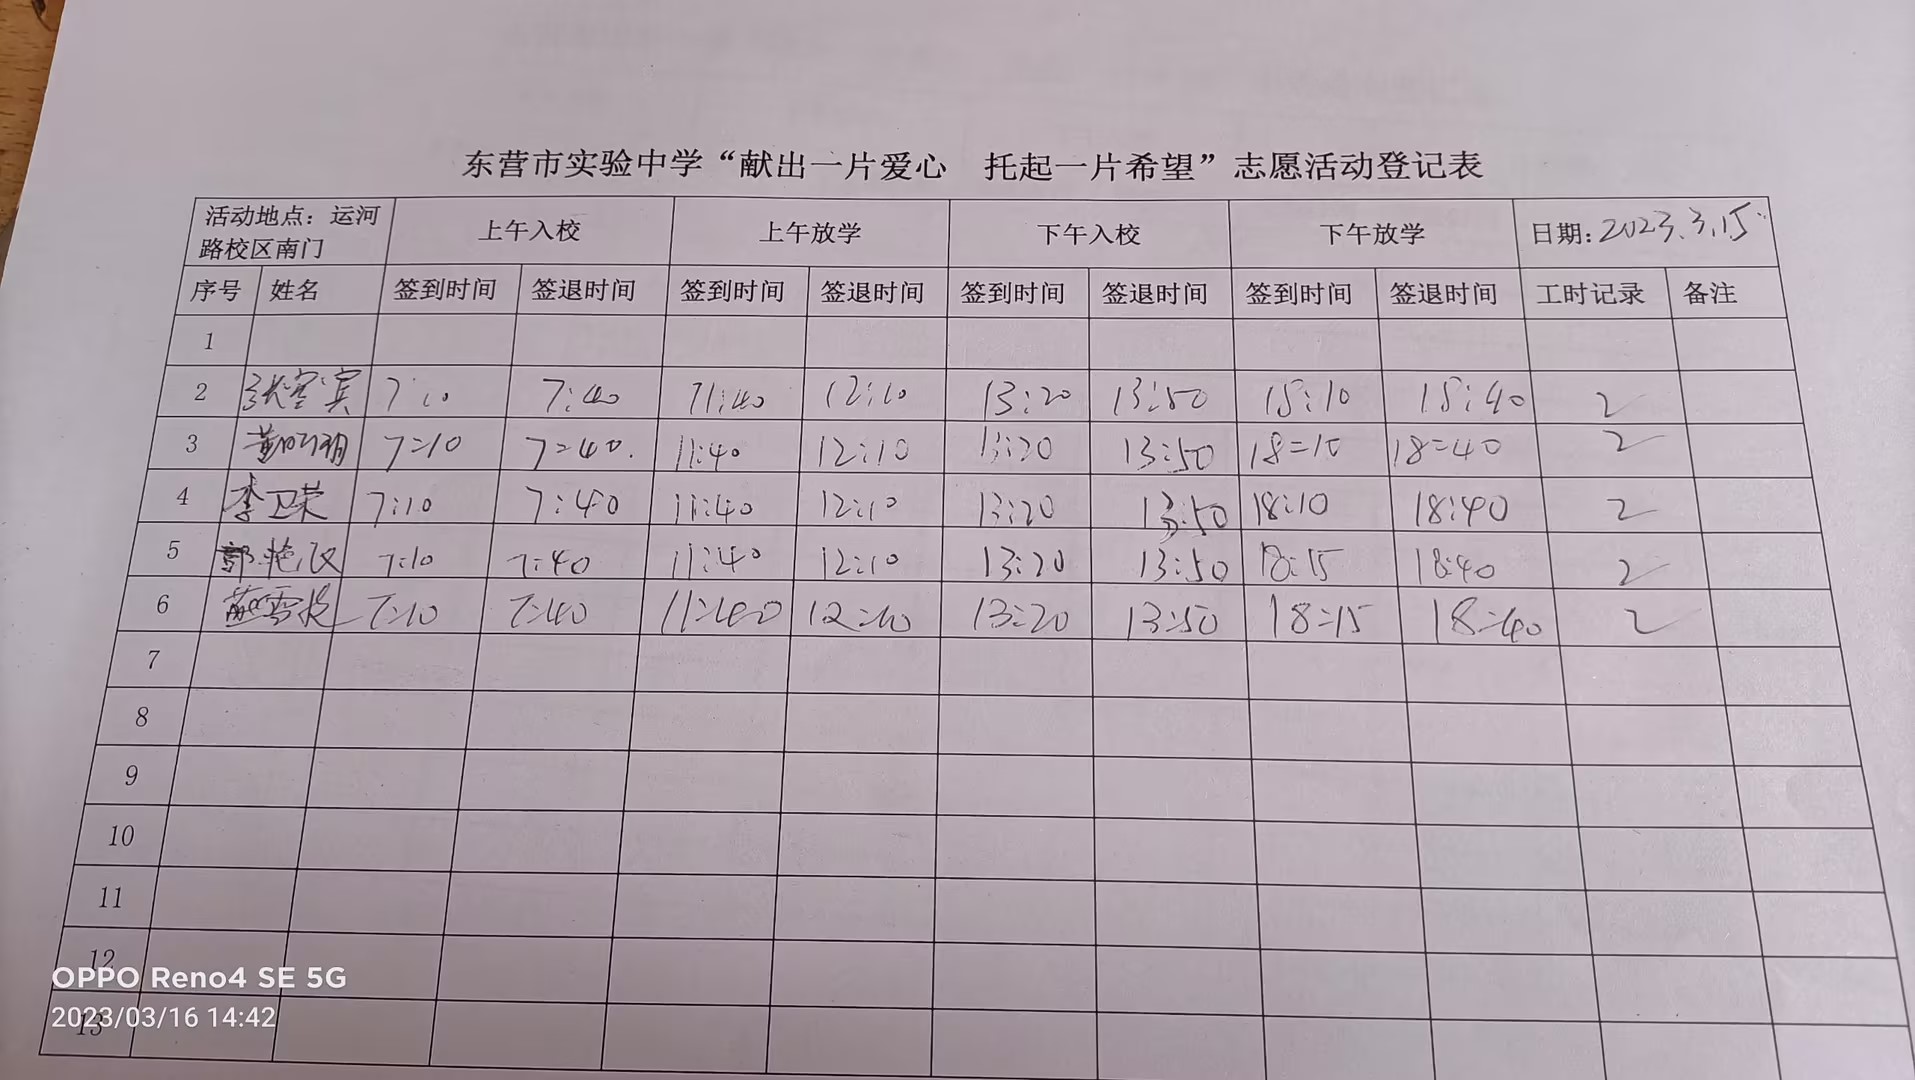 东营市实验中学“献出一片爱心 托起一片希望”志愿活动登记表
活动地点：运河路校区南门 上午入校 上午放学 下午入校 下午放学 日期：2023.3.15
序号 姓名 签到时间 签退时间 签到时间 签退时间 签到时间 签退时间 签到时间 签退时间 工时记录 备注
1
2 7:10 7:40 11:40 12:10 13:20 13:50 15:10 15:40 2
3 7:10 7:40 11:40 12:10 13:20 13:50 18:10 18:40 2
4 李卫荣 7:10 7:40 11:40 12:10 13:20 13:50 18:10 18:40 2
5 7:10 7:40 11:40 12:10 13:20 13:50 18:15 18:40 2
6 7:10 7:40 11:40 12:10 13:20 13:50 18:15 18:40 2
7
8
9
10
11
12
OPPO Reno4 SE 5G
2023/03/16 14:42
13